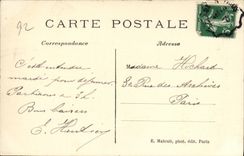 92
CARTE POSTALE
Correspondance
Adresse
C'est entendu
mardi pour déjeuner
Madame Hochard
52 Rue des Archives
Partirons à 2h.
Paris
Bons baisers
E. Mahoult, phot. édit. Paris